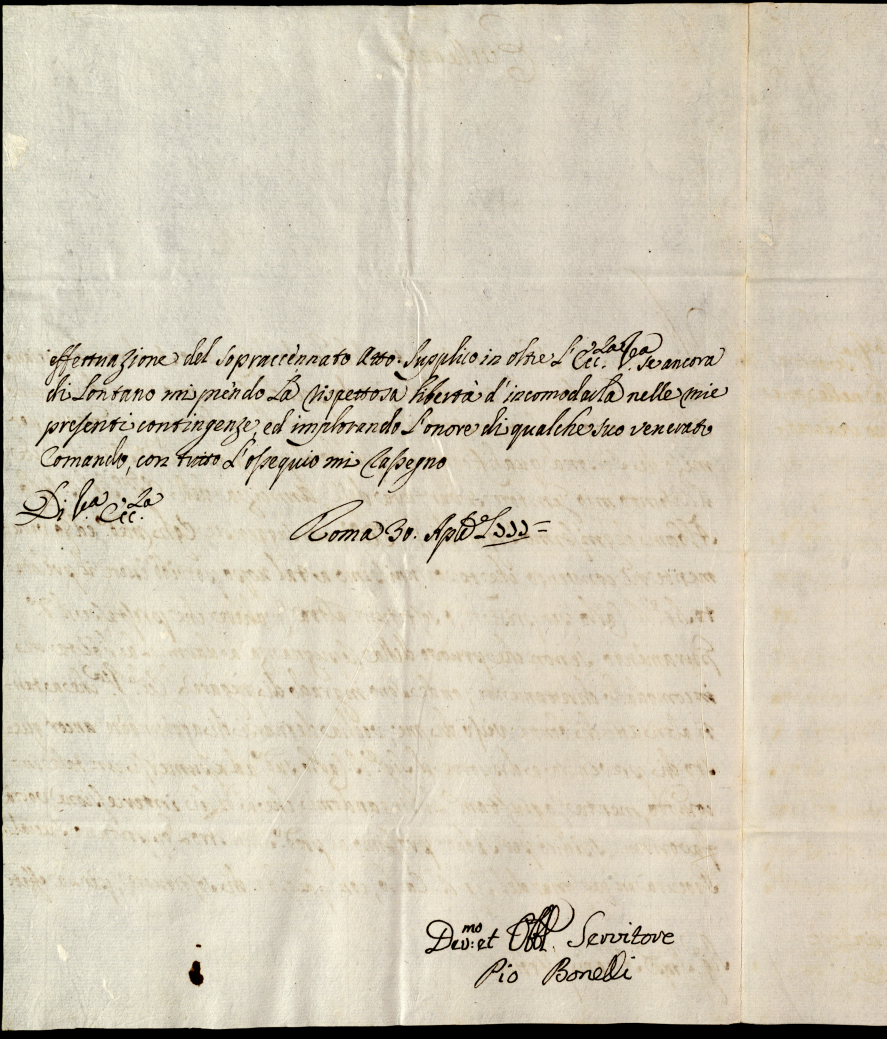 effettuazione del sopraccennato Atto. Supplico in oltre l'Ecc.za V.ra se ancora
di lontano mi prendo la rispettosa libertà d'incomodarla nelle mie
presenti contingenze, ed implorando l'onore di qualche suo venerato
Comando, con tutto l'ossequio mi rassegno
Di V.ra Ecc.za
Roma 30. Aple
Dev:mo et Obbl. Servitore
Pio Bonelli